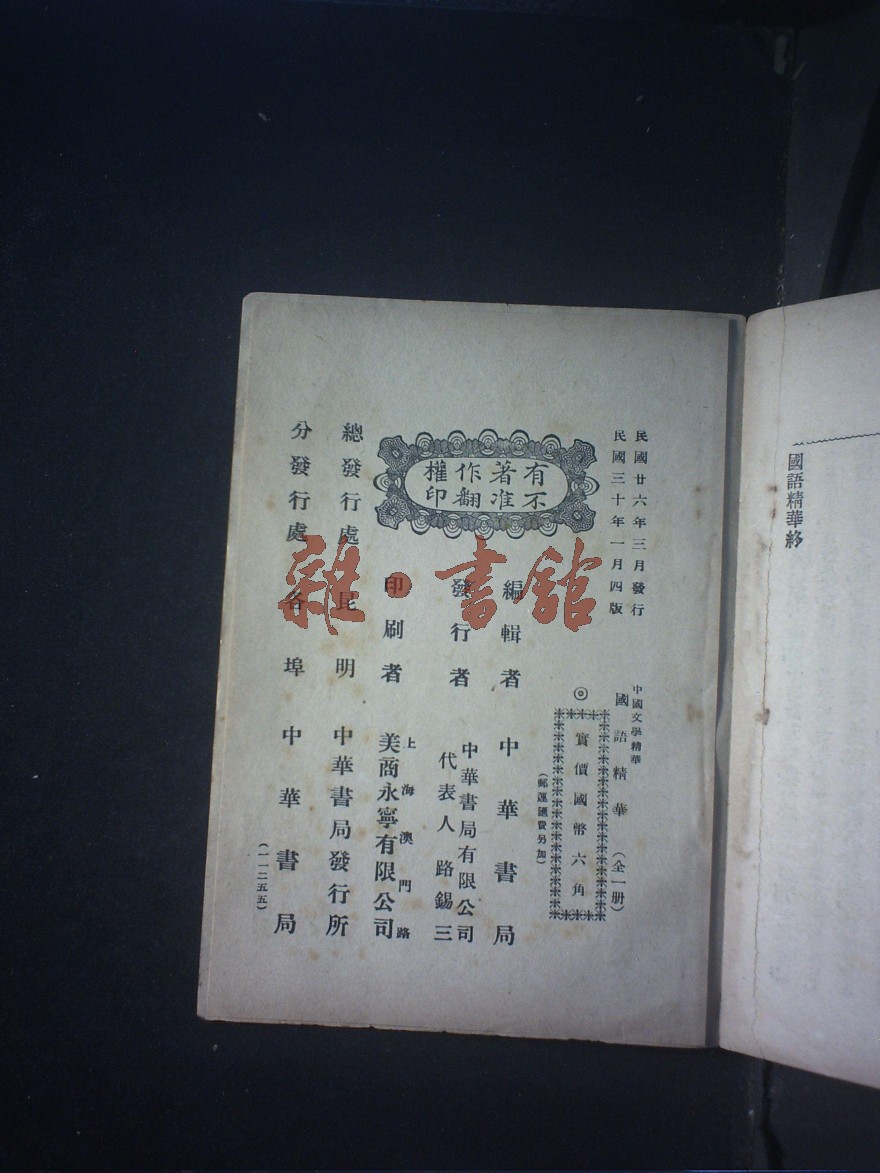 國語精華終
民國廿六年三月發行
民國三十年一月四版
中國文學精華
國語精華（全一册）
◎實價國幣六角
（郵運匯費另加）
有著作權
不准翻印
編輯者 中華書局
發行者 中華書局有限公司
代表人路錫三
印刷者 上海澳門路
美商永寧有限公司
總發行處 昆明 中華書局發行所
分發行處 各埠 中華書局
（一一二五五）
雜·書館